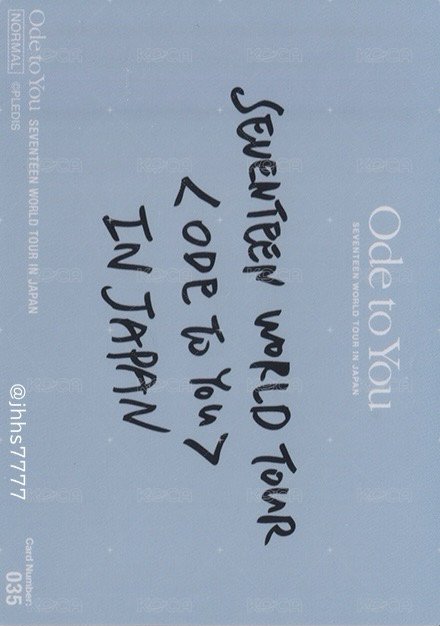 Ode to You
SEVENTEEN WORLD TOUR IN JAPAN
SEVENTEEN WORLD TOUR
<ODE TO YOU>
IN JAPAN
Ode to You SEVENTEEN WORLD TOUR IN JAPAN
NORMAL ©PLEDIS
Card Number:
035
@jhhs7777